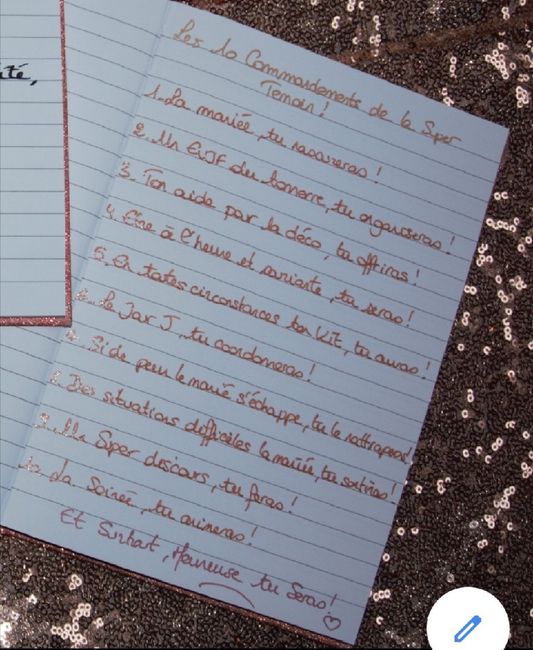 ité,
Les 10 Commandements de la Super
Temoin !
1. La mariée, tu rassureras !
2. Un EVJF du tonnerre, tu organiseras !
3. Ton aide pour la déco, tu offriras !
4. Être à l'heure et souriante, tu seras !
5. En toutes circonstances ton Kit, tu auras !
6. Le Jour J, tu coordonneras !
7. Si de peur le marié s'échappe, tu le rattraperas !
8. Des situations difficiles la mariée, tu sortiras !
9. Un Super discours, tu feras !
10. La Soirée, tu animeras !
Et Surtout, Heureuse tu Seras ! ♡